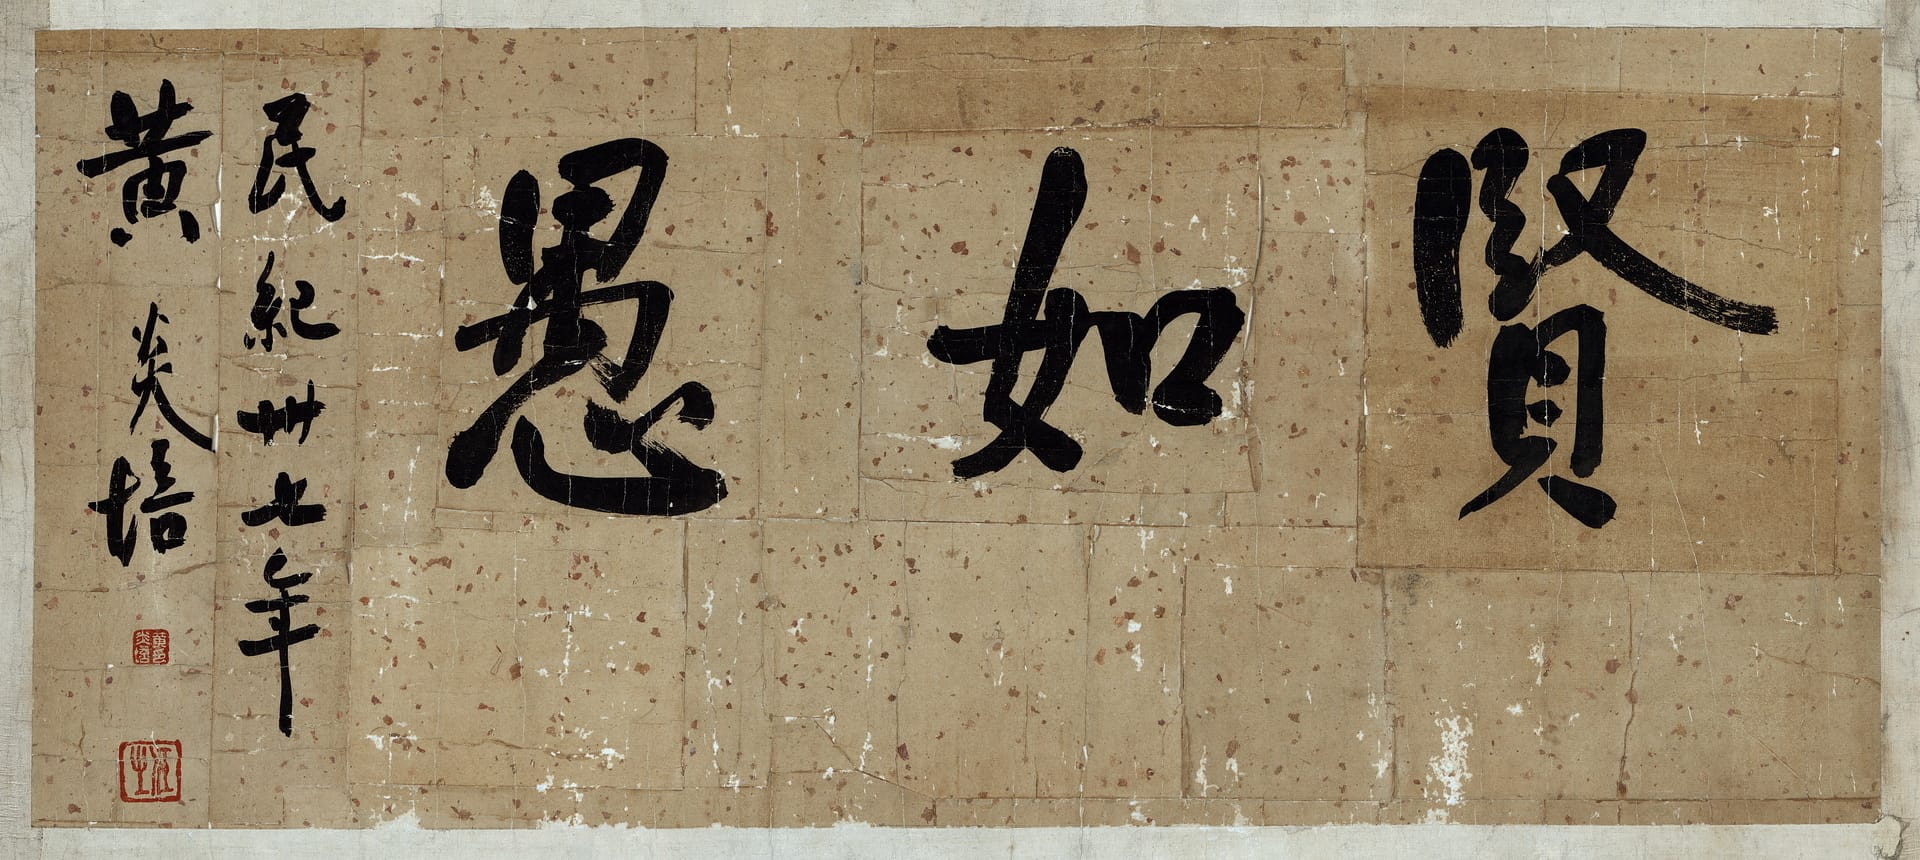 賢如愚
民紀卅七年
黃炎培
任之